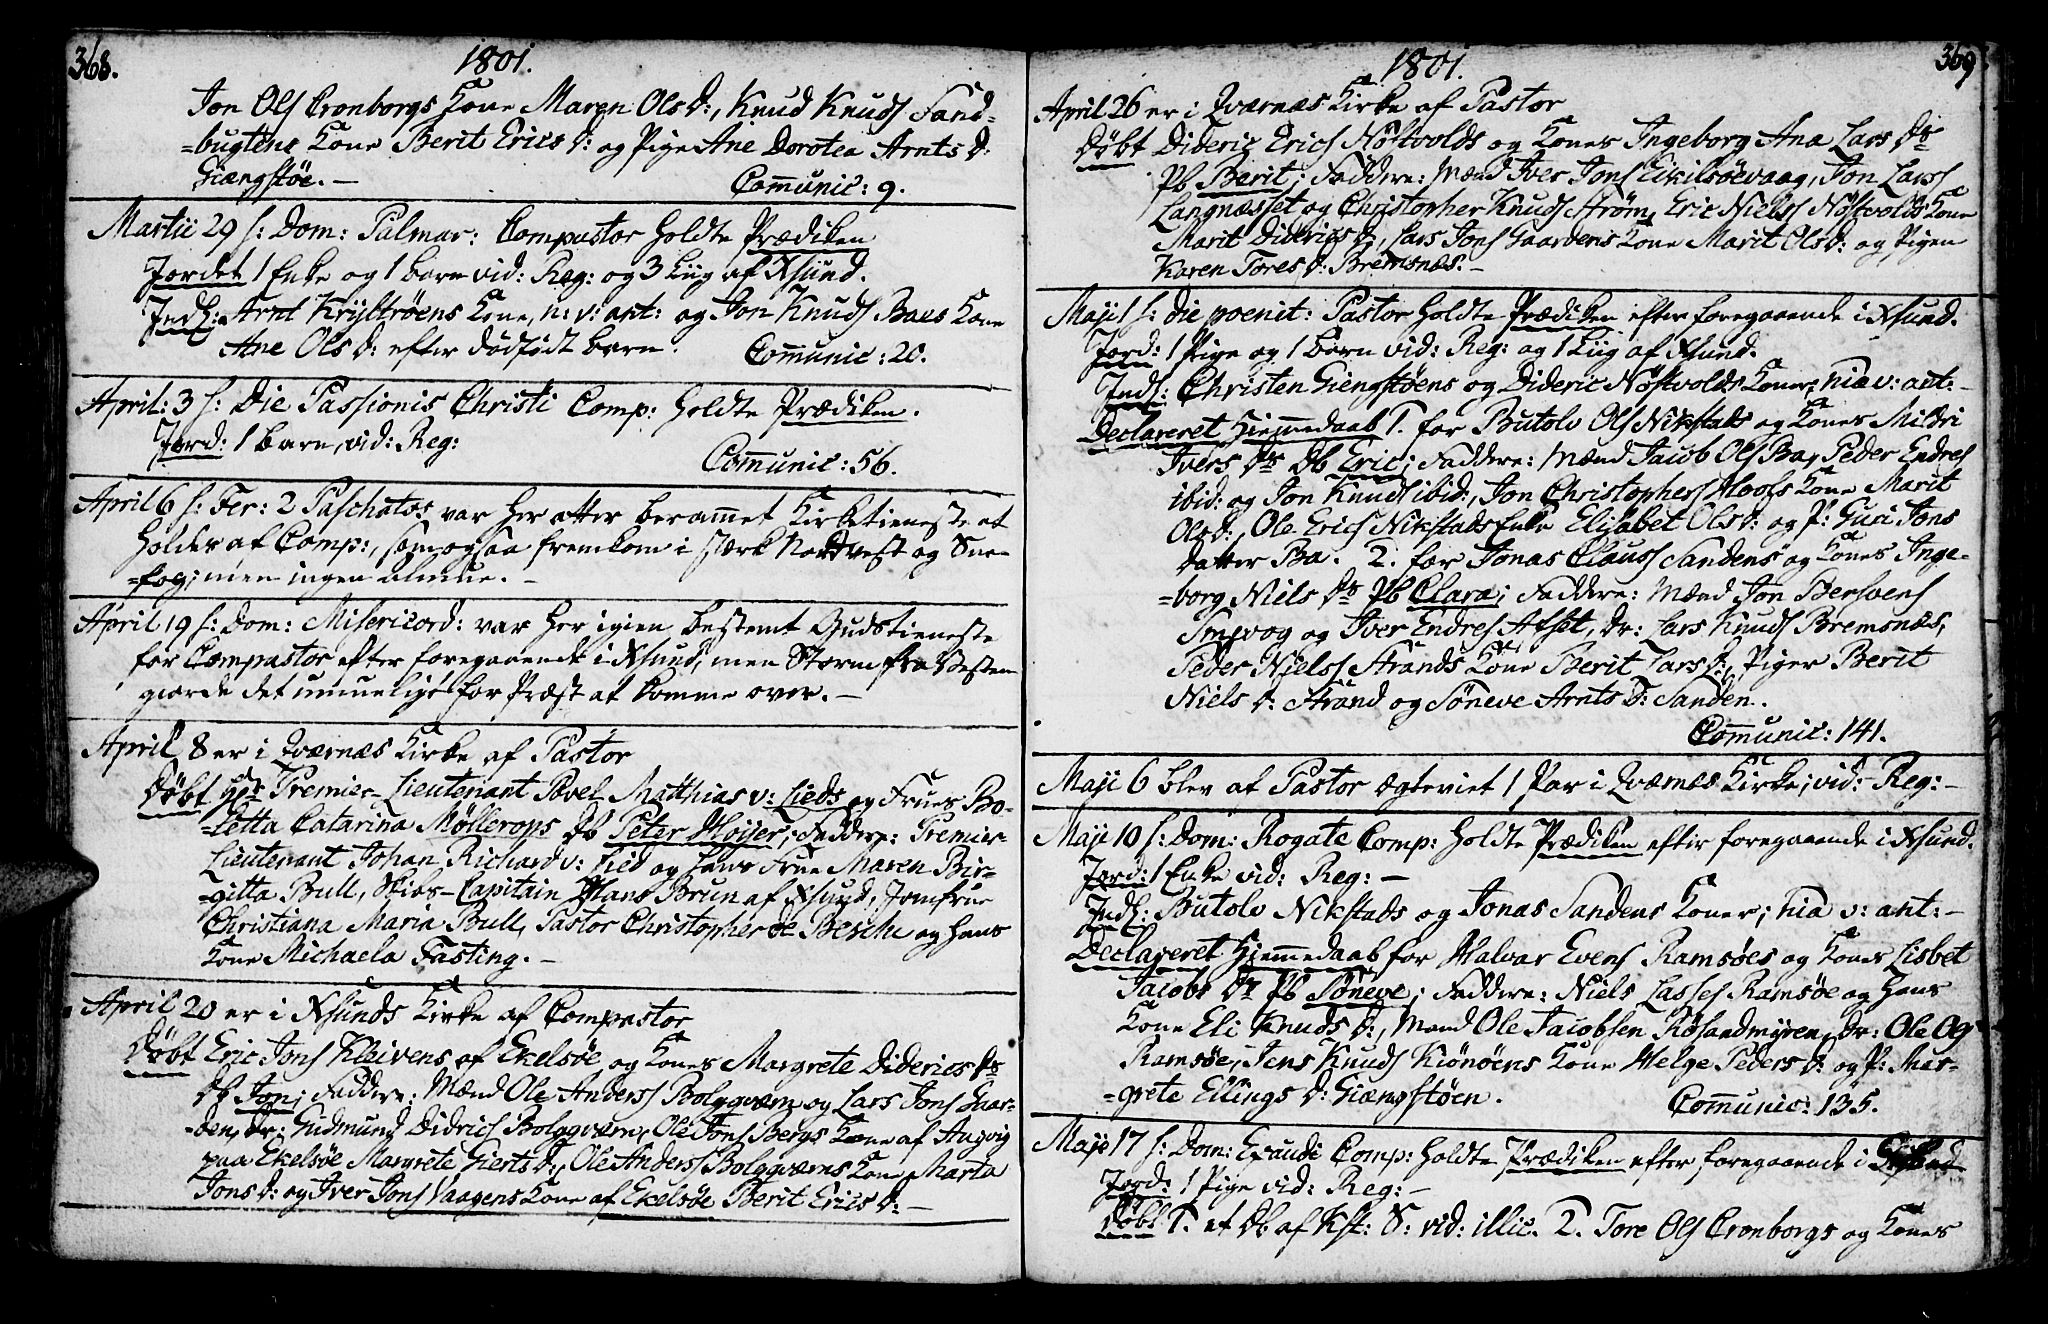 368.
1801.
Jon Ols Cronborgs Kone Maren Ols D:, Knud Knuds Sand-
=bugtens Kone Berit Erics D: og Pige Ane Dorotea Arnts D:
Giængstøe. —
Comunic: 9.
Martii 29 s: Dom: Palmar: Compastor holdte Prædiken
Jordet 1 Enke og 1 barn vid: Reg: og 3 Liig af Xsund.
Indl: Arnt Kryltrøens Kone, n: v: ant: og Jon Knuds Baes Kone
Ane Ols D: efter dødfødt barn.
Comunic: 20.
April: 3 s: Die Passionis Christi Comp: holdte Prædiken.
Jord: 1 barn, vid: Reg:
Comunic: 56.
April 6 s: Fer: 2 Paschatos var her atter beramet Kirketieneste at
holdes af Comp:, som ogsaa fremkom i stærk Nordvest og Snee
=fog; men ingen Almue. —
April 19 s: Dom: Misericord: var her igien bestemt Gudstieneste
for Compastor efter foregaaende i Xsund, men Storm fra Vesten
giorde det umueligt for Præst at komme over. —
April 8 er i Qværnæs Kirke af Pastor
Døbt Hr Premier-Lieutenant Povel Matthias v: Lieds og Frues Bo-
=letta Catarina Møllerops Db Peter Høyer; Faddere: Premier-
Lieutenant Johan Richard v: Lied og hans Frue Maren Bir-
=gitta Bull, Skibs-Capitain Hans Brun af Xsund, Jomfrue
Christiana Maria Bull, Pastor Christopher de Besche og hans
Kone Michaela Fasting. —
April 20 er i Xsunds Kirke af Compastor
Døbt Eric Jons Kleivens af Ekelsøe og Kones Margrete Diderics Dr
Db Jon; Faddere: Mænd Ole Anderss Bolggværn og Lars Jons Gaar-
=den, Dr: Gudmund Didrics Bolggværn, Ole Jons Bergs Kone af Angvig
paa Ekelsøe Margrete Gierts D:, Ole Anderss Bolggværns Kone Marta
Jons D: og Iver Jons Vaagens Kone af Ekelsøe Berit Erics D: —
369
1801.
April 26 er i Qværnæs Kirke af Pastor
Døbt Dideric Erics Nøstvolds og Kones Ingeborg Ana Lars Dr
Pb Berit; Faddere: Mænd Iver Jons Eikilsøevaag, Jon Larss
Langnæsset og Christopher Knuds Strøm, Eric Nielss Nøstvolds Kone
Marit Diderics D:, Lars Jons Gaardens Kone Marit Ols D: og Pigen
Karen Tores D: Bremsnæs. —
Maji 1 s: die poenit: Pastor holdte Prædiken efter foregaaende i Xsund.
Jord: 1 Pige og 1 barn vid: Reg: og 1 Liig af Xsund.
Indl: Christen Giengstøens og Dideric Nøstvolds Koner; hia v: ant: —
Declareret Hjemmedaab 1. for Butolv Ols Nikstads og Kones Mildri
Ivers Dr Db Eric; Faddere: Mænd Jacob Ols Ba, Peder Endres
ibid: og Jon Knuds ibid:, Jon Christophers Moes Kone Marit
Ols D:, Ole Erics Nikstads Enke Elisabet Ols D: og P: Guri Jons
datter Ba. 2. for Jonas Clauss Sandens og Kones Inge-
=borg Niels Dr Pb Clara; Faddere: Mænd Jon Bersvens
Smevog og Iver Endres Afset, Dr: Lars Knuds Bremsnæs,
Peder Nielss Strands Kone Berit Lars D:, Piger Berit
Niels D: Strand og Søneve Arnts D: Sanden.
Comunic: 141.
Maji 6 blev af Pastor ægteviet 1 Par i Qværnæs Kirke; vid: Reg: —
Maji 10 s: Dom: Rogate Comp: holdte Prædiken efter foregaaende i Xsund.
Jord: 1 Enke vid: Reg: —
Indl: Butolv Nikstads og Jonas Sandens Koner; hia v: ant: —
Declareret Hjemmedaab for Halvar Evens Ramsøes og Kones Lisbet
Jacobs Dr Pb Søneve; Faddere: Niels Lasses Ramsøe og hans
Kone Eli Knuds D:, Mænd Ole Jacobsen Røsandmyren, Dr: Ole Ols
Ramsøe, Jens Knuds Kiønøens Kone Helge Peders D: og P: Mar-
=grete Ellings D: Giængstøen.
Comunic: 135.
Maji 17 s: Dom: Exaudi Comp: holdte Prædiken efter foregaaende i Xsund
Jord: 1 Pige vid: Reg: —
Døbt 1. et Db af Kst: S: vid: illic. 2. Tore Ols Cronborgs og Kones